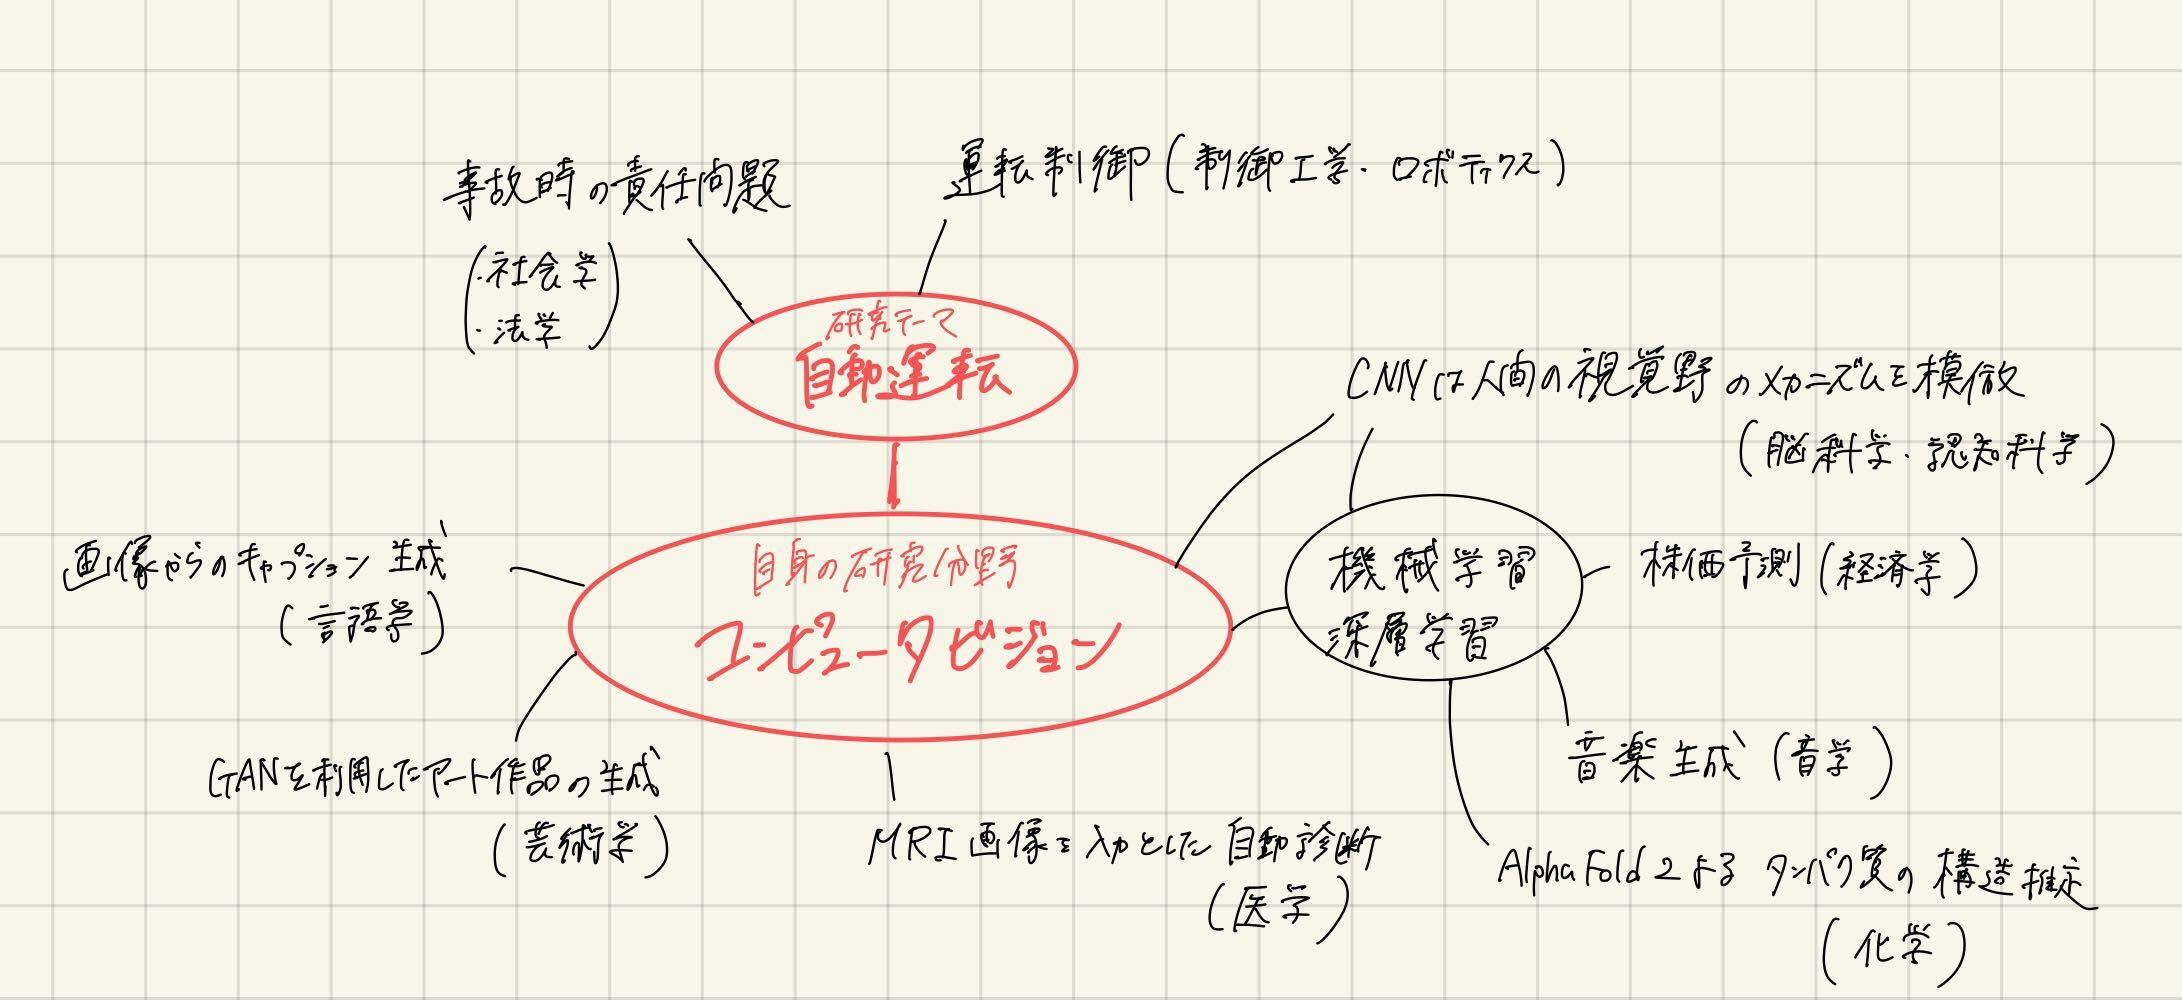 事故時の責任問題
(・社会学
・法学)
運転制御(制御工学・ロボティクス)
研究テーマ
自動運転
CNNは人間の視覚野のメカニズムを模倣
(脳科学・認知科学)
画像からのキャプション生成
(言語学)
自身の研究分野
コンピュータビジョン
機械学習
深層学習
株価予測(経済学)
GANを利用したアート作品の生成
(芸術学)
MRI画像を入力とした自動診断
(医学)
音楽生成(音学)
AlphaFold2よるタンパク質の構造推定
(化学)